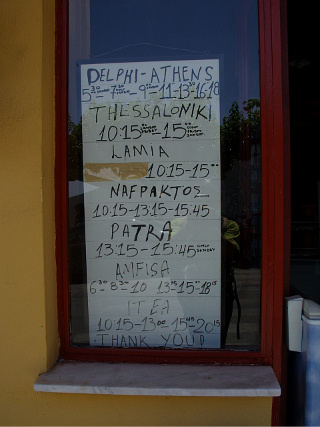 DELPHI-ATHENS
5³⁰ - 7³⁰ - 9⁰⁰ - 11-13³⁰-16-18
THESSALONIKI
10:15 - 15
LAMIA
10:15-15⁰⁰
NAFPAKTOS
10:15-13:15-15:45
PATRA
13:15-15:45
AMFISA
6³⁰-8³⁰-10 13¹⁵-15⁴⁵-18¹⁵
ITEA
10:15-13⁰⁰ 15⁴⁵-20¹⁵
THANK YOU!